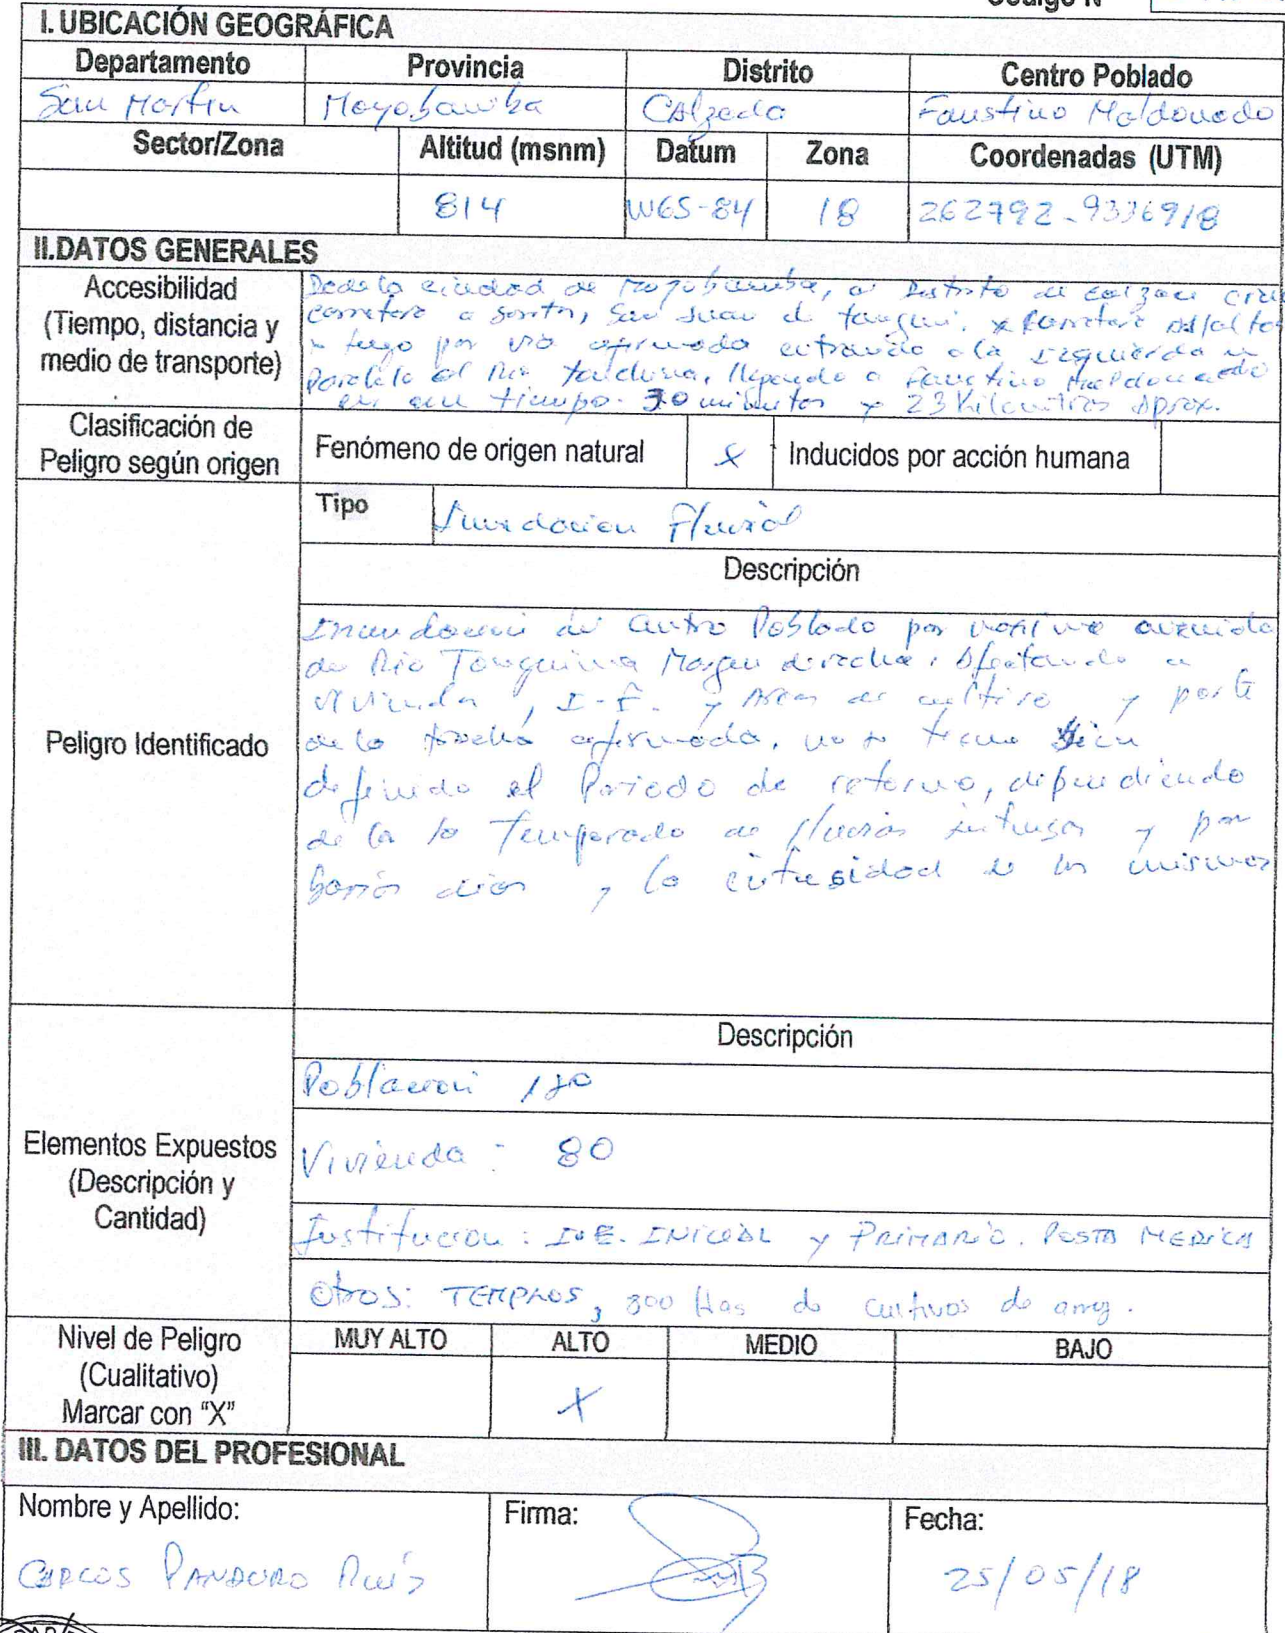 Código N
I. UBICACIÓN GEOGRÁFICA
Departamento Provincia Distrito Centro Poblado
San Martin Moyobamba CAlzada Faustino Maldonado
Sector/Zona Altitud (msnm) Datum Zona Coordenadas (UTM)
814 WGS-84 18 262792 - 9336918
II.DATOS GENERALES
Accesibilidad
(Tiempo, distancia y
medio de transporte)
Desde la ciudad de Moyobamba, a Distrito de Calzada
carretera a Soritor, San Juan de carretera Asfalto
luego por via afirmada entrando a la izquierda
Paralelo al Rio llegando a Faustino Maldonado
en un tiempo. 30 minutos y 23 Kilometros Aprox.
Clasificación de
Peligro según origen
Fenómeno de origen natural x Inducidos por acción humana
Peligro Identificado
Tipo Inundacion Fluvial
Descripción
Inundacion de Centro Poblado por avenida
de Rio Margen derecha, Afectando a
vivienda, I.E. y Area de cultivo y parte
de la trocha afirmada, no se tiene bien
definido el Periodo de retorno, dependiendo
de la la Temporada de lluvias intensas y por
dias y la intensidad de las mismas
Elementos Expuestos
(Descripción y
Cantidad)
Descripción
Poblacion
Vivienda : 80
Institucion : I.E. INICIAL y PRIMARIA. POSTA MEDICA
Otros: TEMPLOS, 800 Has de cultivos de arroz.
Nivel de Peligro
(Cualitativo)
Marcar con “X”
MUY ALTO ALTO MEDIO BAJO
X
III. DATOS DEL PROFESIONAL
Nombre y Apellido: Firma: Fecha:
CARLOS PANDURO Ruiz 25/05/18